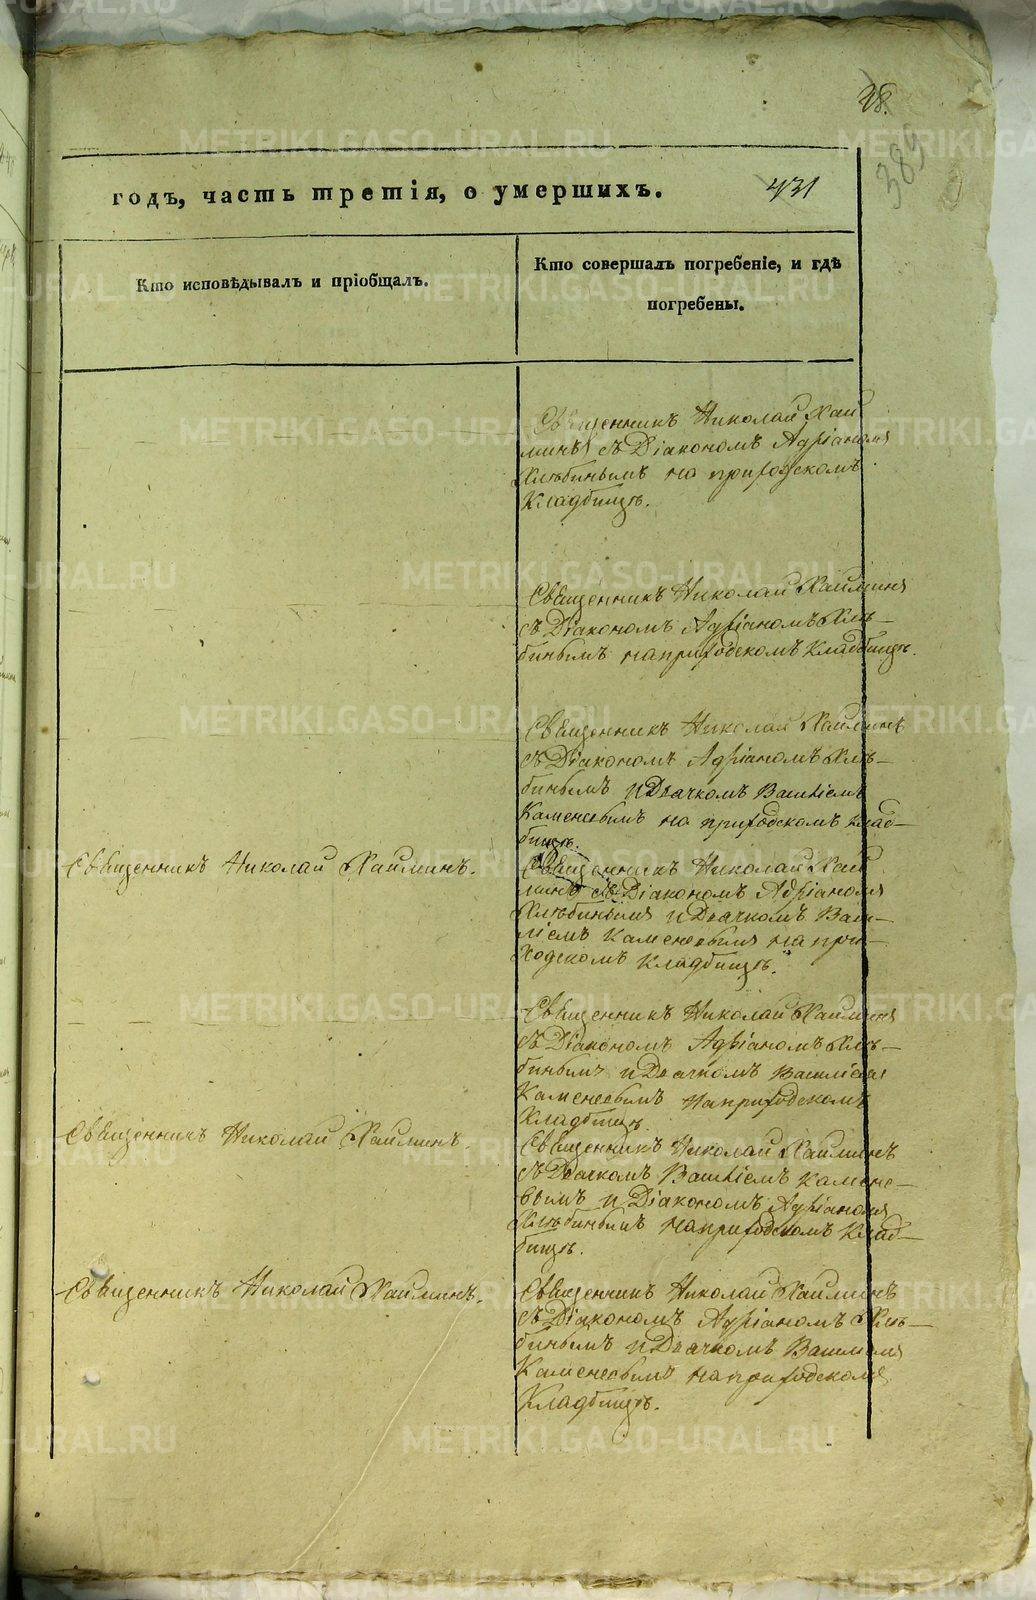 28.
389
годъ, часть третія, о умершихъ.
431
Кто исповѣдывалъ и пріобщалъ.
Кто совершалъ погребеніе, и гдѣ
погребены.
Священникъ Николай Хай
минъ съ Діакономъ Адріаномъ
Хлѣбинымъ на приходскомъ
Кладбищѣ.
Священникъ Николай Хайминъ
съ Діакономъ Адріаномъ Хлѣ-
бинымъ на приходскомъ Кладбищѣ.
Священникъ Николай Хайминъ
съ Діакономъ Адріаномъ Хлѣ-
бинымъ и Дьячкомъ Василіемъ
Каменевымъ на приходскомъ клад-
бищѣ.
Священникъ Николай Хайминъ.
Священникъ Николай Хай
минъ съ Діакономъ Адріаномъ
Хлѣбинымъ и Дьячкомъ Васи-
ліемъ Каменевымъ на при-
ходскомъ Кладбищѣ.
Священникъ Николай Хайминъ
съ Діакономъ Адріаномъ Хлѣ-
бинымъ и Дьячкомъ Василіемъ
Каменевымъ на приходскомъ
Кладбищѣ.
Священникъ Николай Хайминъ.
Священникъ Николай Хайминъ
съ Дьячкомъ Василіемъ Камене-
вымъ и Діакономъ Адріаномъ
Хлѣбинымъ на приходскомъ Клад-
бищѣ.
Священникъ Николай Хайминъ.
Священникъ Николай Хайминъ
съ Діакономъ Адріаномъ Хлѣ-
бинымъ и Дьячкомъ Василіемъ
Каменевымъ на приходскомъ
Кладбищѣ.
METRIKI.GASO-URAL.RU